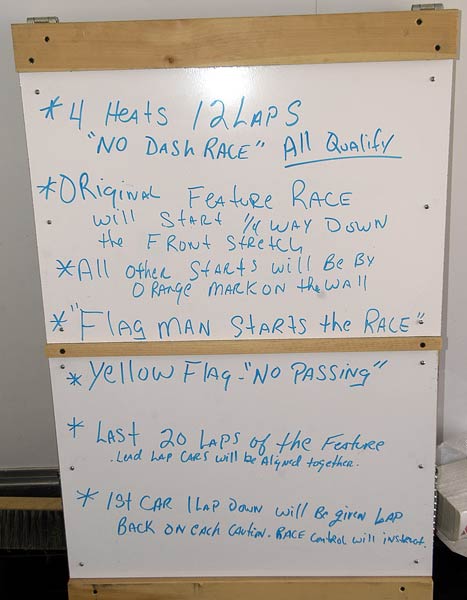 * 4 Heats 12 Laps
"No Dash Race" All Qualify
* Original Feature Race
will Start 1/4 way Down
the Front Stretch
* All other Starts will Be By
Orange Mark on the wall
* "Flag man Starts the Race"
* Yellow Flag - "No Passing"
* Last 20 Laps of the Feature
. Lead Lap cars will be Aligned together.
* 1st Car 1 Lap Down will Be given Lap
Back on each Caution. Race Control will instruct.